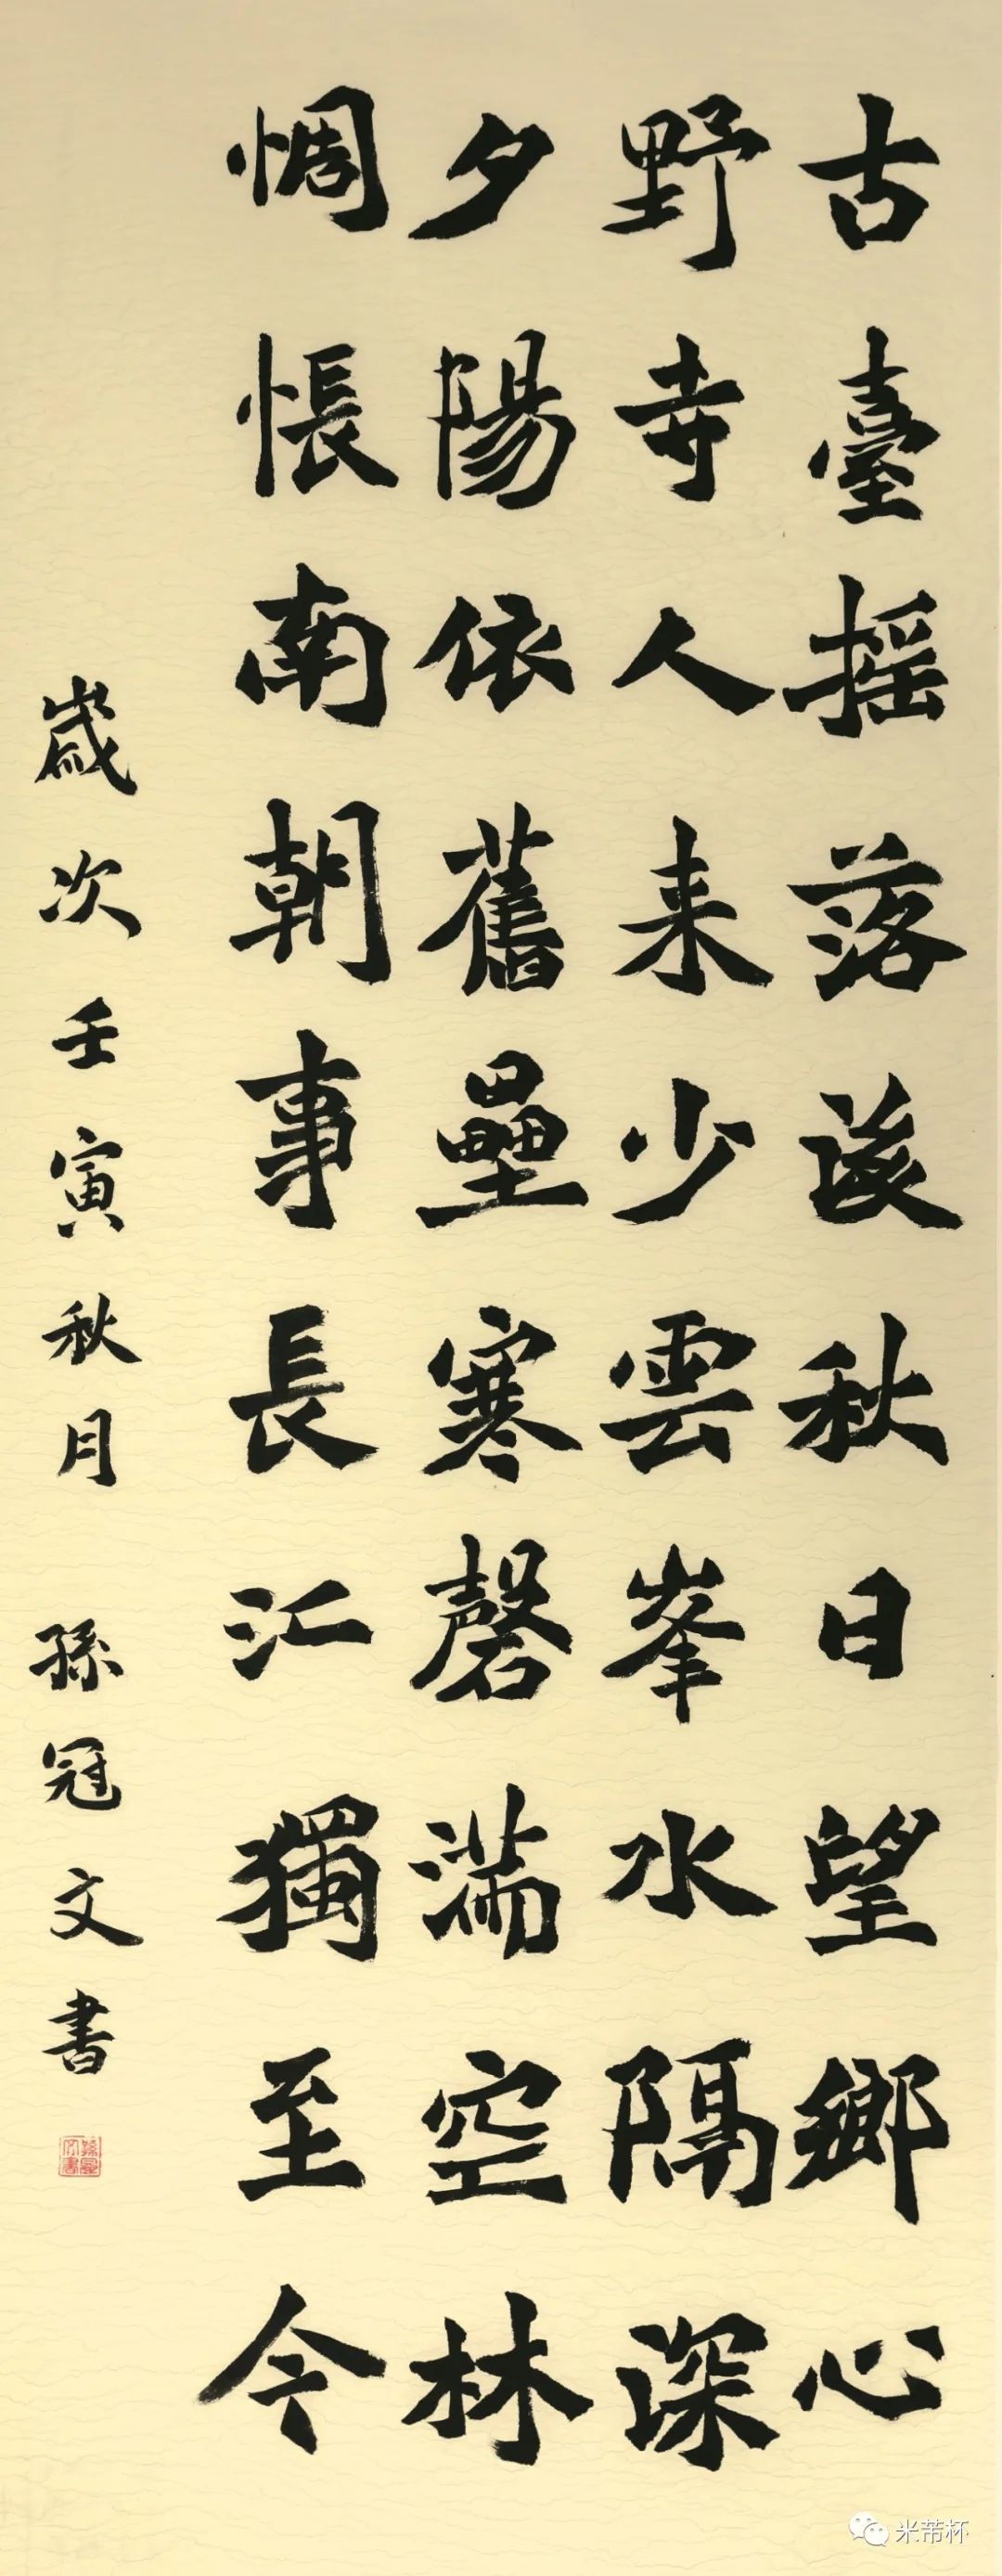 古臺摇落後秋日望鄉心
野寺人来少雲峯水隔深
夕陽依舊壘寒磬滿空林
惆悵南朝事長江獨至今
歲次壬寅秋月 孫冠文書
米芾杯